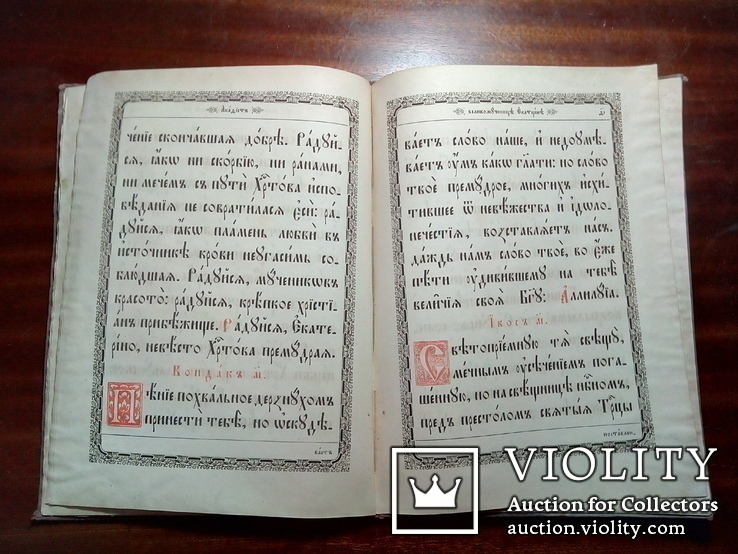 Акаѳїстъ
ченїе скончавшая добрѣ. Радуй-
ся, ꙗкѡ ни скорбїю, ни ранами,
ни мечемъ съ пути Хр҃това испо-
вѣданїя не совратилася є҆си: ра-
дуйся, ꙗкѡ пламень любви въ
источникѣ крови неугасимь со-
блюдшая. Радуйся, мученикѡвъ
красото: радуйся, крѣпкое хрїстї-
анъ прибѣжище. Радуйся, Екате-
рїно, невѣсто Хр҃това премудрая.
Кондакъ а҃і.
Пѣнїе похвальное дерзнухомъ
принести тебѣ, но ѡскудѣ-
ваетъ
великомученицѣ Екатерїнѣ
ваетъ слово наше, и недоумѣ-
ваетъ умъ какѡ гл҃ати: но слово
твоѐ премудрое, многихъ исхи-
тившее ѿ невѣжества и ідѡло-
нечестїя, возставляетъ насъ.
даждь намъ слово твое, во є҆же
пѣти удивившему на тебѣ
величїя своѧ̑ Бг҃у: Аллилуїа.
Ікосъ а҃і.
Свѣтопрїемную тѧ̀ свѣщу,
мечнымъ усѣченїемъ пога-
шенную, но на свѣщницѣ нб҃номъ,
предъ престоломъ святыѧ Трⷪ҇цы
VIOLITY
Auction for Collectors
auction.violity.com